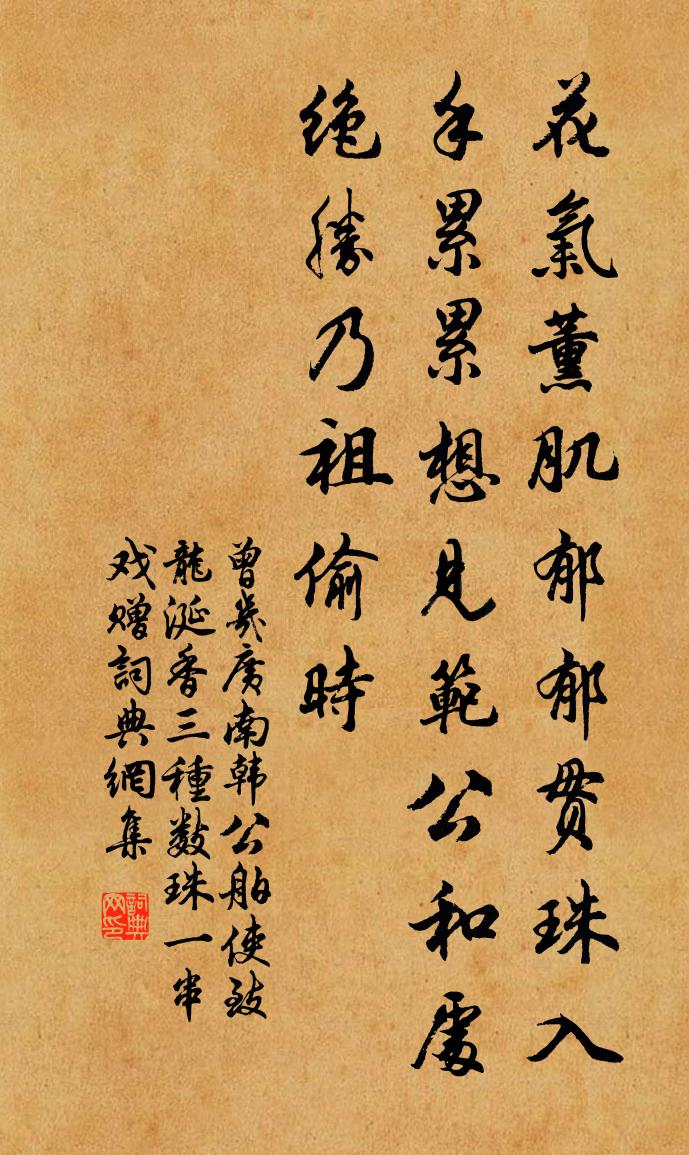 花氣薰肌郁郁貫珠入
手累累想見範公和處
绝勝乃祖偷時
曾幾廣南韩公舶使致
龍涎香三種数珠一串
戏赠詞典網集
詞典网印